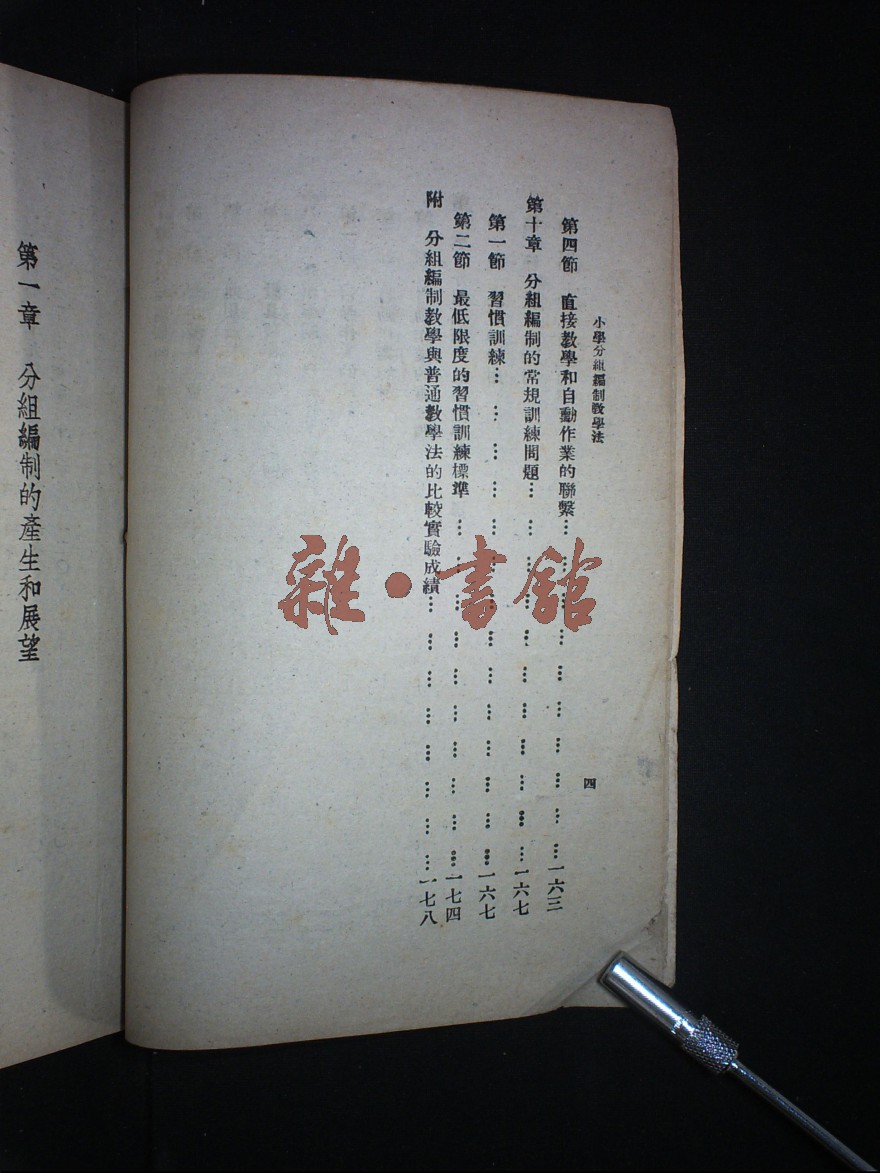 小學分組編制教學法
四
第四節 直接教學和自動作業的聯繫…………一六三
第十章 分組編制的常規訓練問題…………一六七
第一節 習慣訓練…………一六七
第二節 最低限度的習慣訓練標準…………一七四
附 分組編制教學與普通教學法的比較實驗成績…………一七八
第一章 分組編制的產生和展望
雜·書館